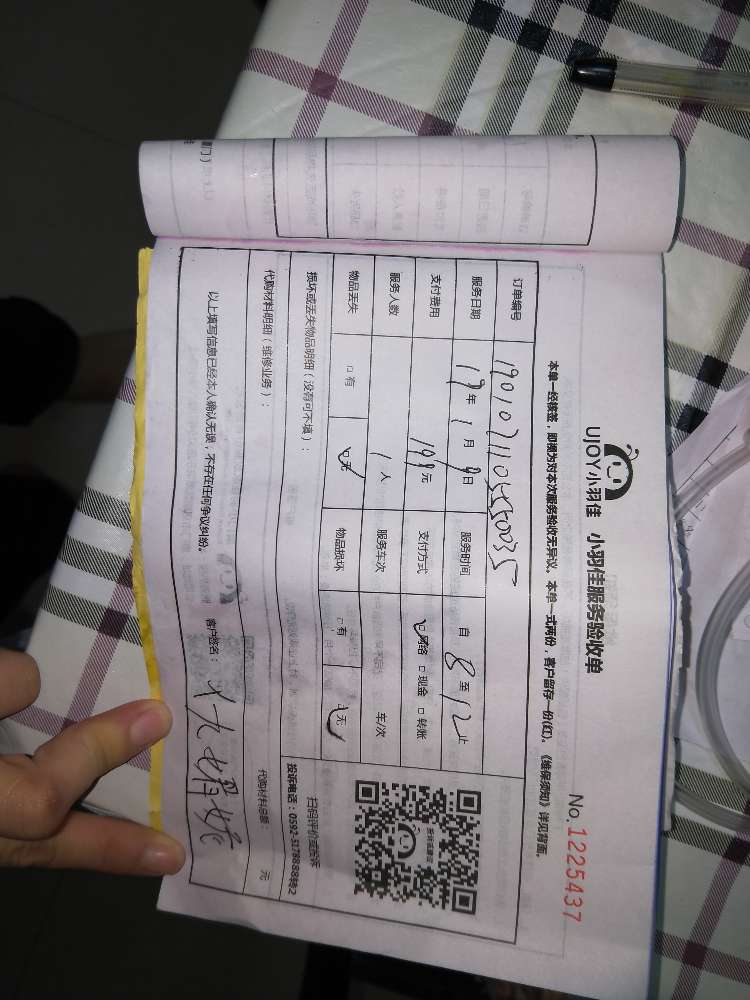 UJOY小羽佳 小羽佳服务验收单
No.1225437
本单一经核签，即视为对本次服务验收无异议。本单一式两份，客户留存一份(红)。《维保须知》详见背面。
订单编号
服务日期 19年1月9日 服务时间 自8至12止
支付费用 199元 支付方式 ☑网络 □现金 □转账
服务人数 1人 服务车次 车/次
物品丢失 □有 ☑无 物品损坏 □有 ☑无
扫码评价或投诉
投诉电话：0592-3178888转2
损坏或丢失物品明细（没有可不填）：
代购材料明细（维修业务）： 代购材料总额： 元
以上填写信息已经本人确认无误，不存在任何争议纠纷。 客户签名：